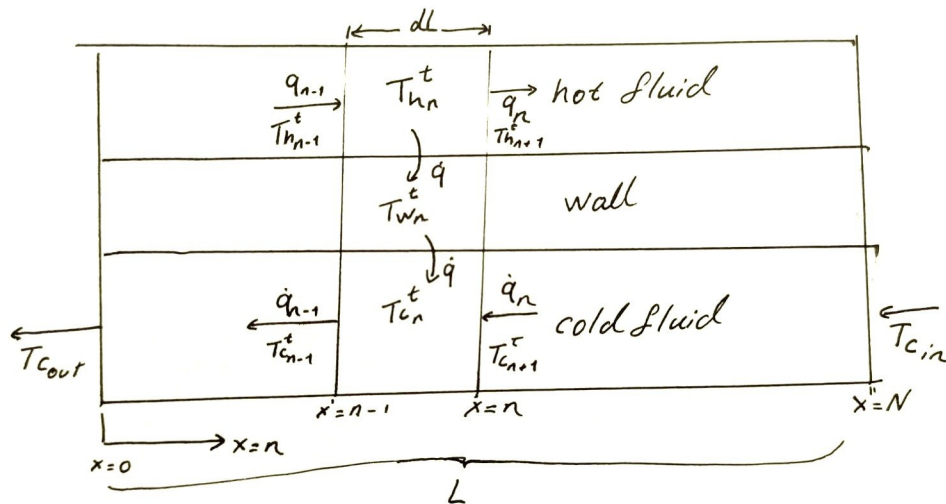 dL
q_{n-1}
T_{h_{n-1}}^t
T_{h_n}^t
q_n
T_{h_{n+1}}^t
hot fluid
q̇
T_{w_n}^t
wall
q̇
q̇_{n-1}
T_{c_{n-1}}^t
T_{c_n}^t
q̇_n
T_{c_{n+1}}^τ
cold fluid
T_{c_{out}}
T_{c_{in}}
x=n-1
x=n
x=N
x=0
x=n
L